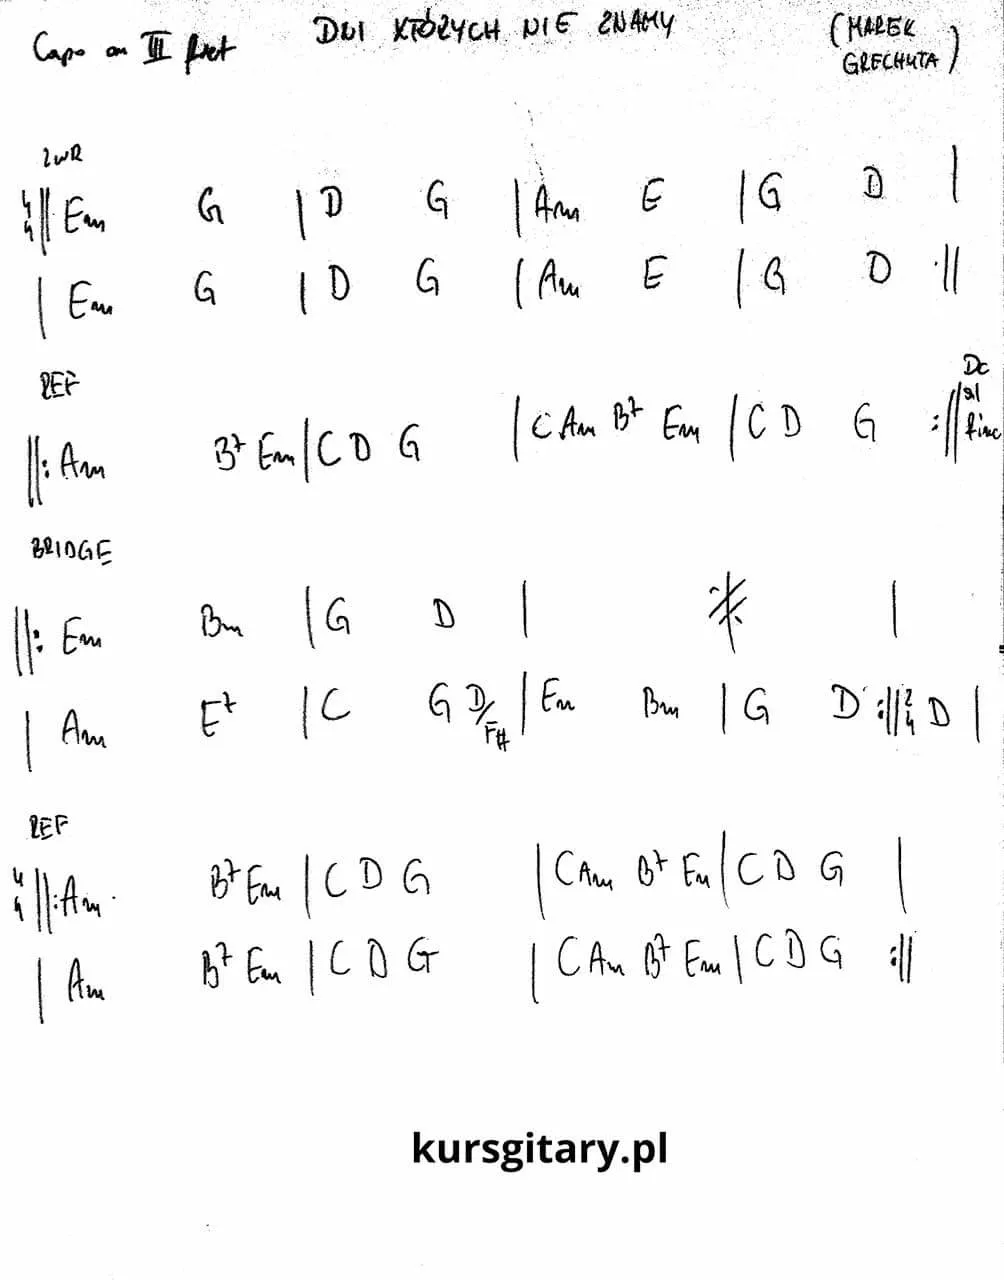 Capo on III fret DNI KTÓRYCH NIE ZNAMY (MAREK GRECHUTA)
ZWR
4/4 || Em G | D G | Am E | G D |
| Em G | D G | Am E | G D :||
REF
||: Am B7 Em | C D G | C Am B7 Em | C D G :|| Dc al fine
BRIDGE
||: Em Bm | G D | 𝄎 |
| Am E7 | C G D/F# | Em Bm | G D :|| 2/4 D |
REF
4/4 ||: Am B7 Em | C D G | C Am B7 Em | C D G |
| Am B7 Em | C D G | C Am B7 Em | C D G :||
kursgitary.pl